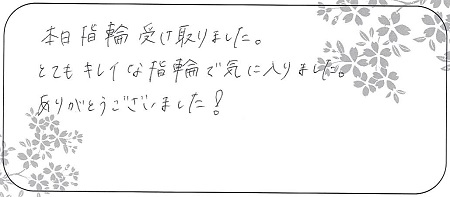 本日指輪受け取りました。
とてもキレイな指輪で気に入りました。
ありがとうございました!